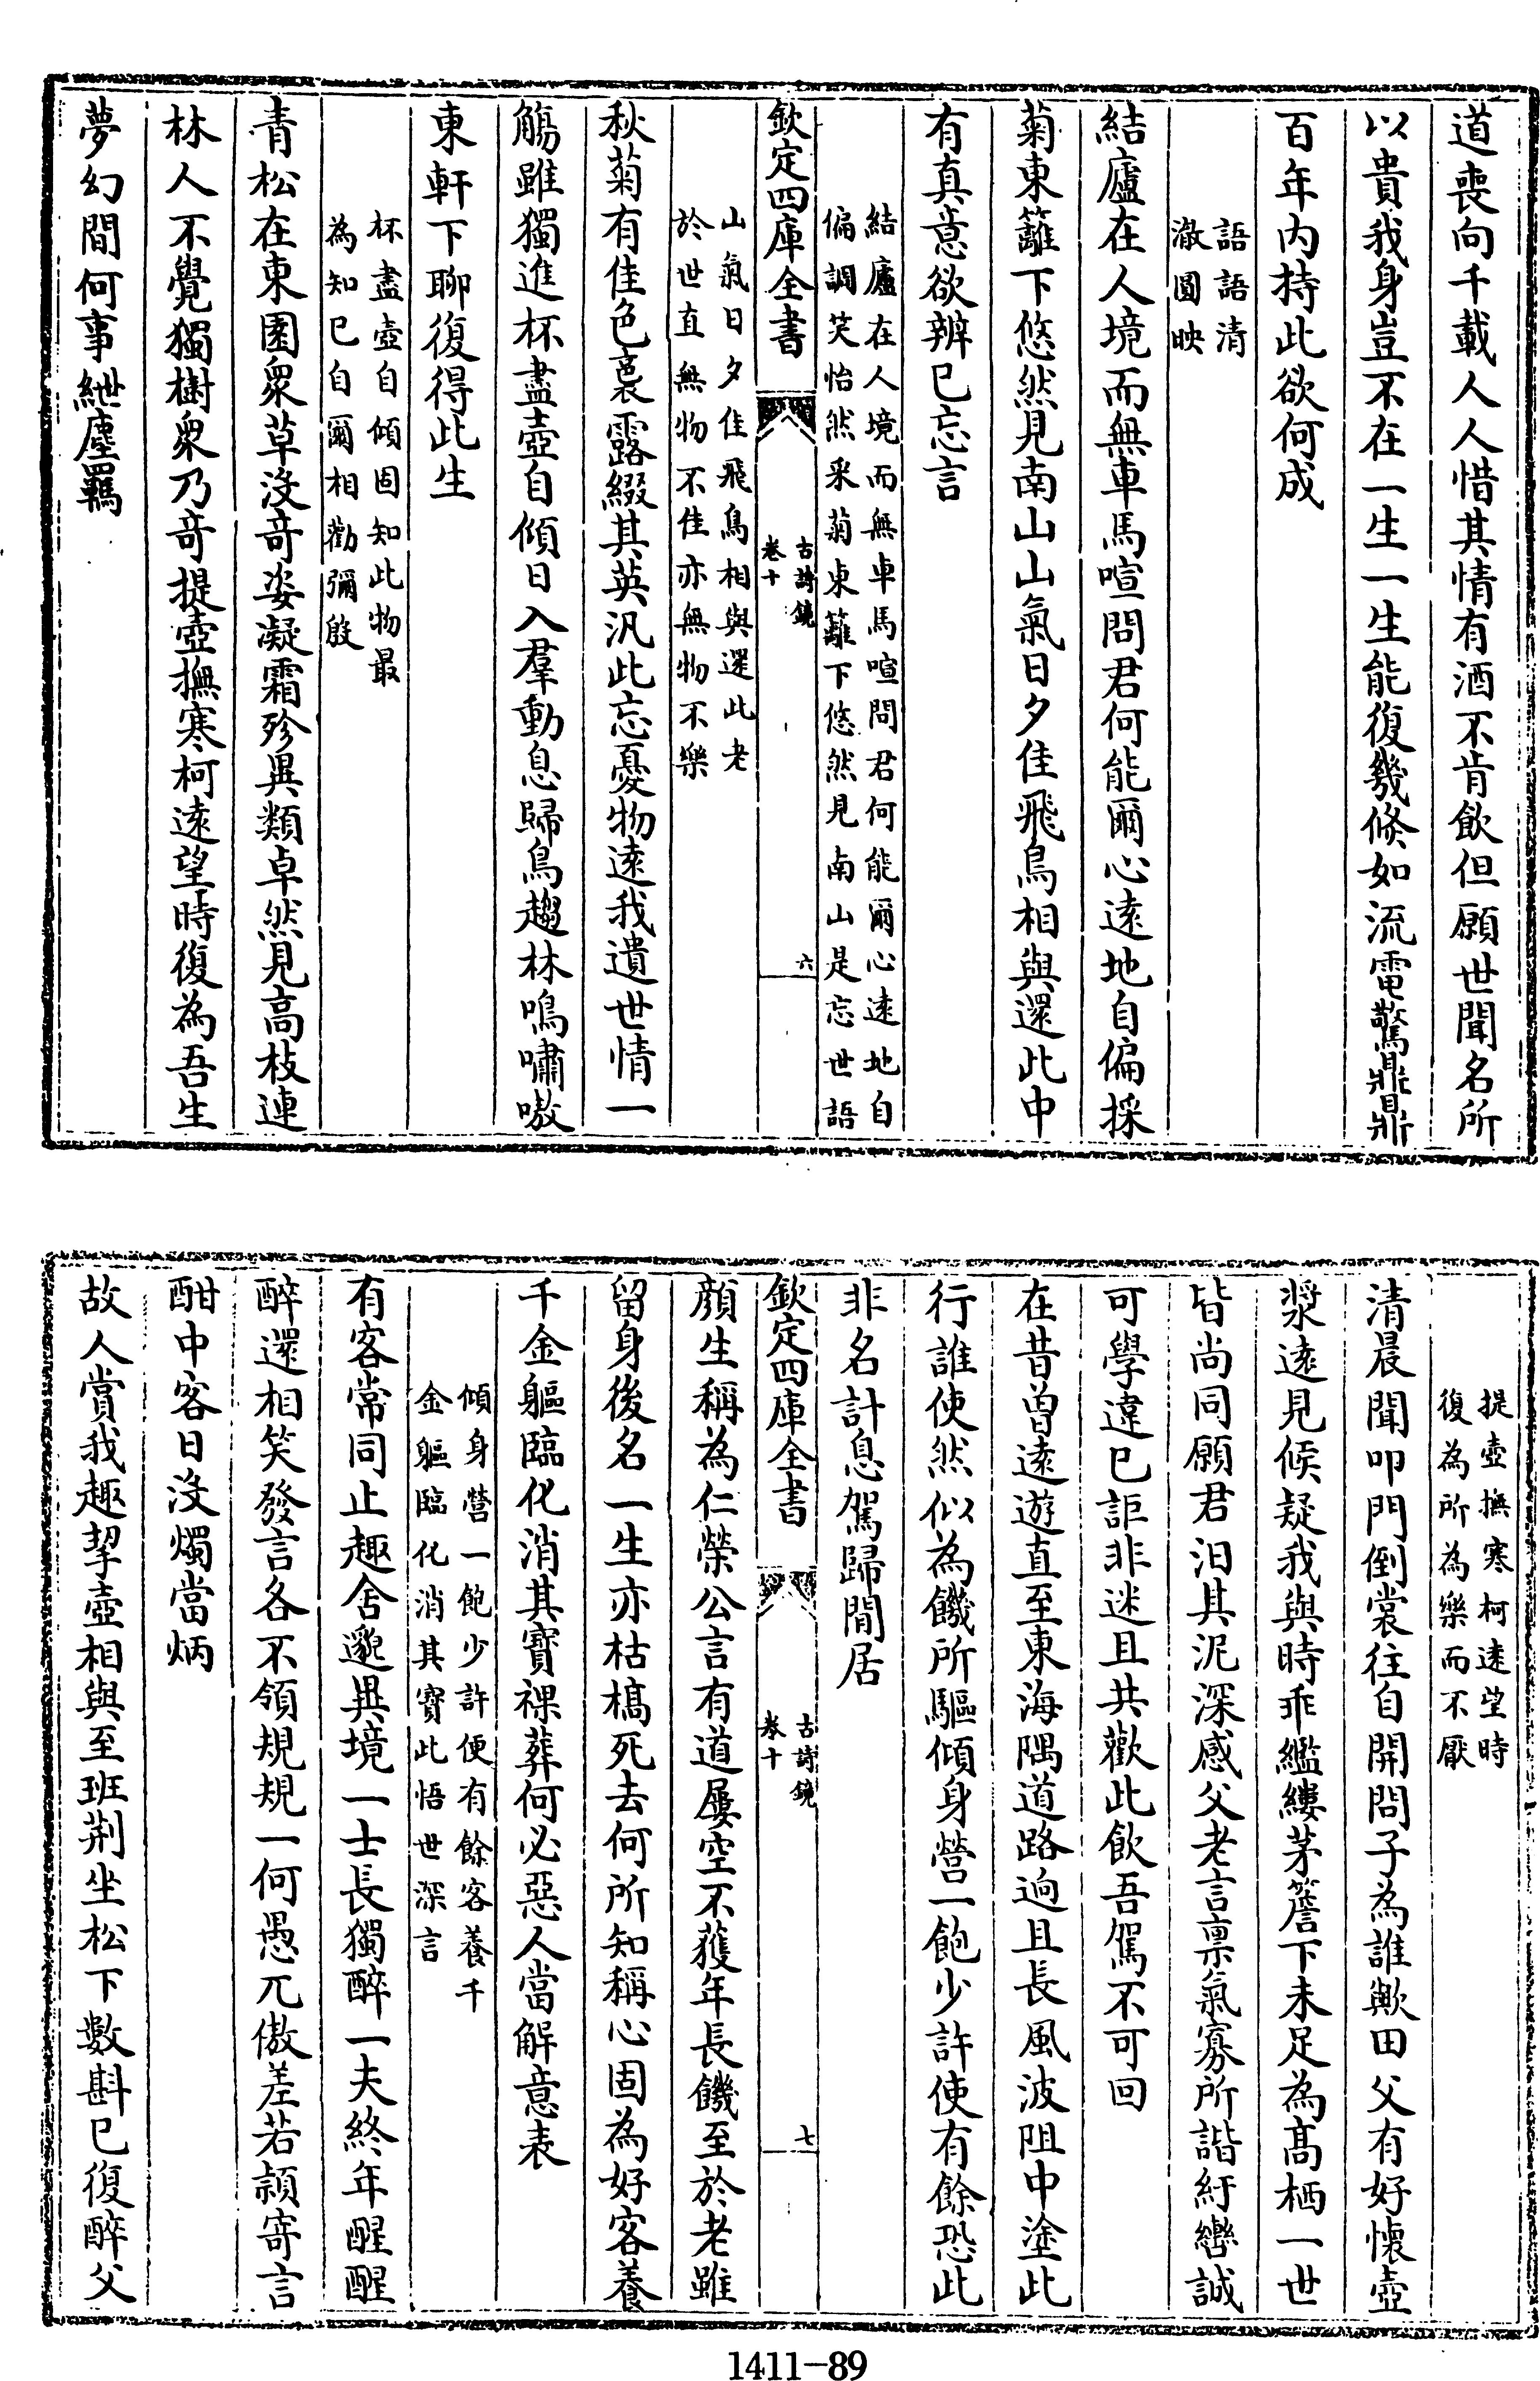 道喪向千載人人惜其情有酒不肯飲但願世聞名所
以貴我身豈不在一生一生能復幾倏如流電驚鼎鼎
百年内持此欲何成
語語清
澈圓映
結廬在人境而無車馬喧問君何能爾心遠地自偏採
菊東籬下悠然見南山山氣日夕佳飛鳥相與還此中
有真意欲辨已忘言
結廬在人境而無車馬喧問君何能爾心遠地自
偏調笑怡然采菊東籬下悠然見南山是忘世語
欽定四庫全書
古詩鏡
卷十
六
山氣日夕佳飛鳥相與還此老
於世直無物不佳亦無物不樂
秋菊有佳色裛露綴其英汎此忘憂物遠我遺世情一
觴雖獨進杯盡壺自傾日入羣動息歸鳥趨林鳴嘯嗷
東軒下聊復得此生
杯盡壺自傾固知此物最
為知已自爾相勸彌殷
青松在東園衆草沒奇姿凝霜殄異類卓然見高枝連
林人不覺獨樹衆乃奇提壺撫寒柯遠望時復為吾生
夢幻間何事紲塵羈
提壺撫寒柯遠望時
復為所為樂而不厭
清晨聞叩門倒裳往自開問子為誰歟田父有好懷壺
漿遠見候疑我與時乖繿縷茅簷下未足為髙栖一世
皆尚同願君汨其泥深感父老言禀氣寡所諧紆轡誠
可學違已詎非迷且共歡此飲吾駕不可回
在昔曾遠遊直至東海隅道路逈且長風波阻中塗此
行誰使然似為饑所驅傾身營一飽少許使有餘恐此
非名計息駕歸閒居
欽定四庫全書
古詩鏡
卷十
七
顏生稱為仁榮公言有道屢空不獲年長饑至於老雖
留身後名一生亦枯槁死去何所知稱心固為好客養
千金軀臨化消其寶裸葬何必惡人當解意表
傾身營一飽少許便有餘客養千
金軀臨化消其寶此悟世深言
有客常同止趣舍邈異境一士長獨醉一夫終年醒醒
醉還相笑發言各不領規規一何愚兀傲差若頴寄言
酣中客日沒燭當炳
故人賞我趣挈壺相與至班荆坐松下數斟已復醉父
1411-89